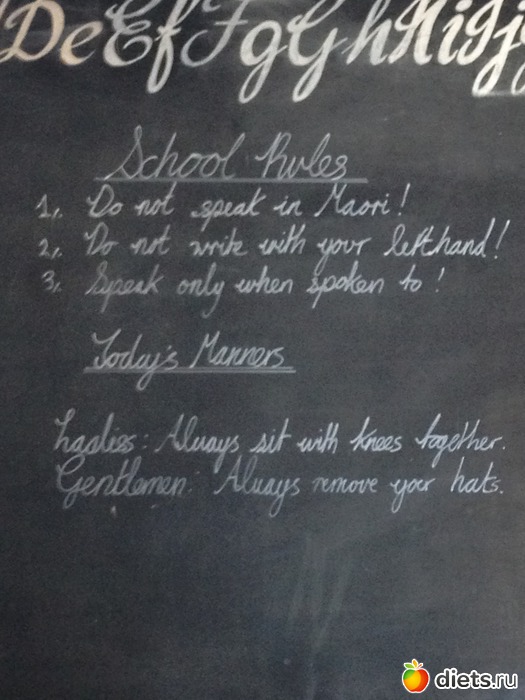 DeEfFgGhHiIj
School Rules
1,. Do not speak in Maori!
2,. Do not write with your lefthand!
3,. Speak only when spoken to!
Today's Manners
Ladies: Always sit with knees together.
Gentlemen: Always remove your hats.
diets.ru